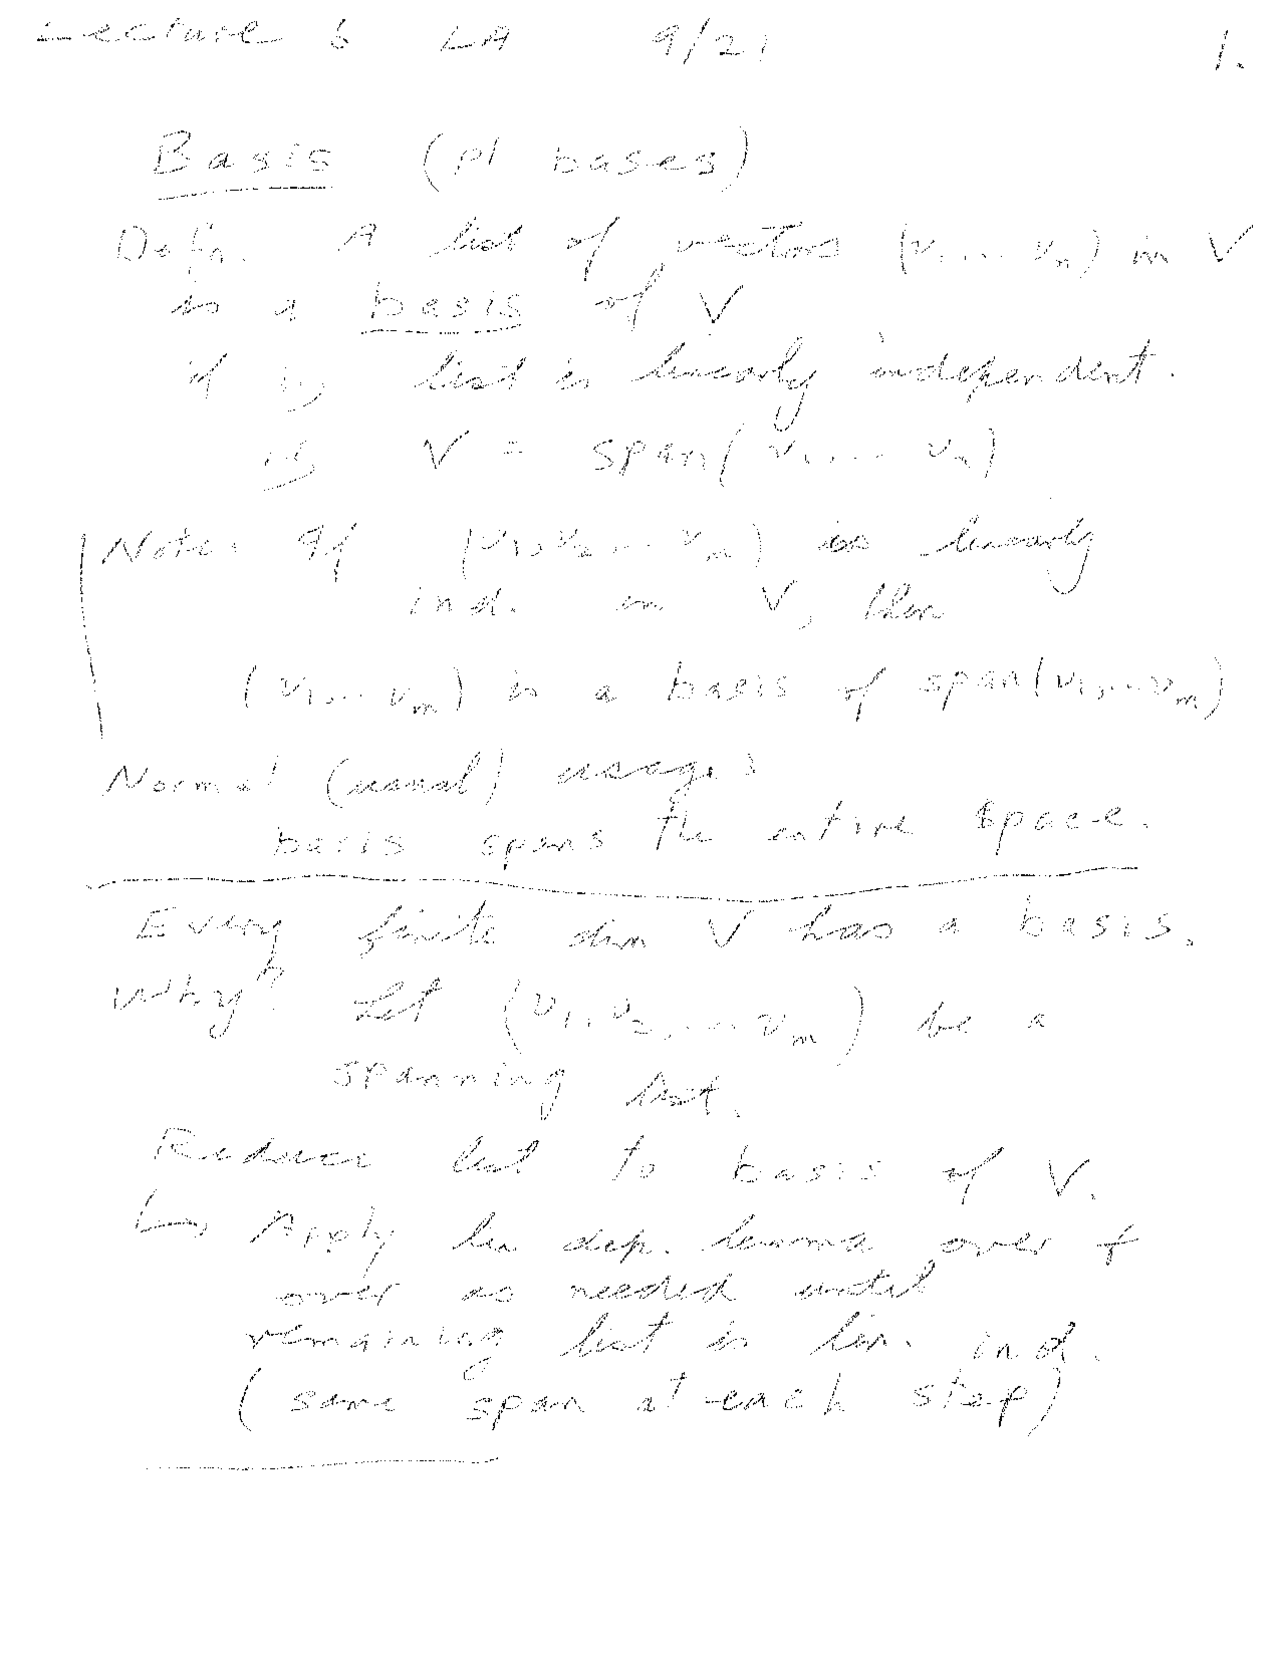 Lecture 6 LA 9/21 1.
Basis (pl bases)
Defn. A list of vectors (v1, ... vn) in V
is a basis of V
if i) list is linearly independent.
ii) V = span(v1, ... vn)
Note: If (v1, v2, ... vn) is linearly
ind. in V, then
(v1, ... vm) is a basis of span(v1, ... vm)
Normal (usual) usage:
basis spans the entire space.
Every finite dim V has a basis.
Why? Let (v1, v2, ... vm) be a
spanning list.
Reduce list to basis of V.
↳ Apply lin dep. lemma over +
over as needed until
remaining list is lin. ind.
(same span at each step)